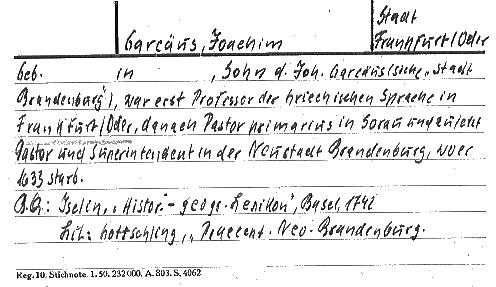 Stadt
Garcäus, Joachim Frankfurt/Oder
Geb. in , Sohn d. Joh. Garcäus (siehe „Stadt
Brandenburg"), war erst Professor der griechischen Sprache in
Frankfurt/Oder, danach Pastor primarius in Sorau und zuletzt
Pastor und Superintendent in der Neustadt Brandenburg, wo er
1633 starb.
B.Q.: Iselin, „Histor.- geogr. Lexikon", Basel, 1742
Lit: Gottschling, „Praecent. Neo-Brandenburg.
Reg. 10. Stichnote. 1. 50. 232 000. A. 803. S. 4062